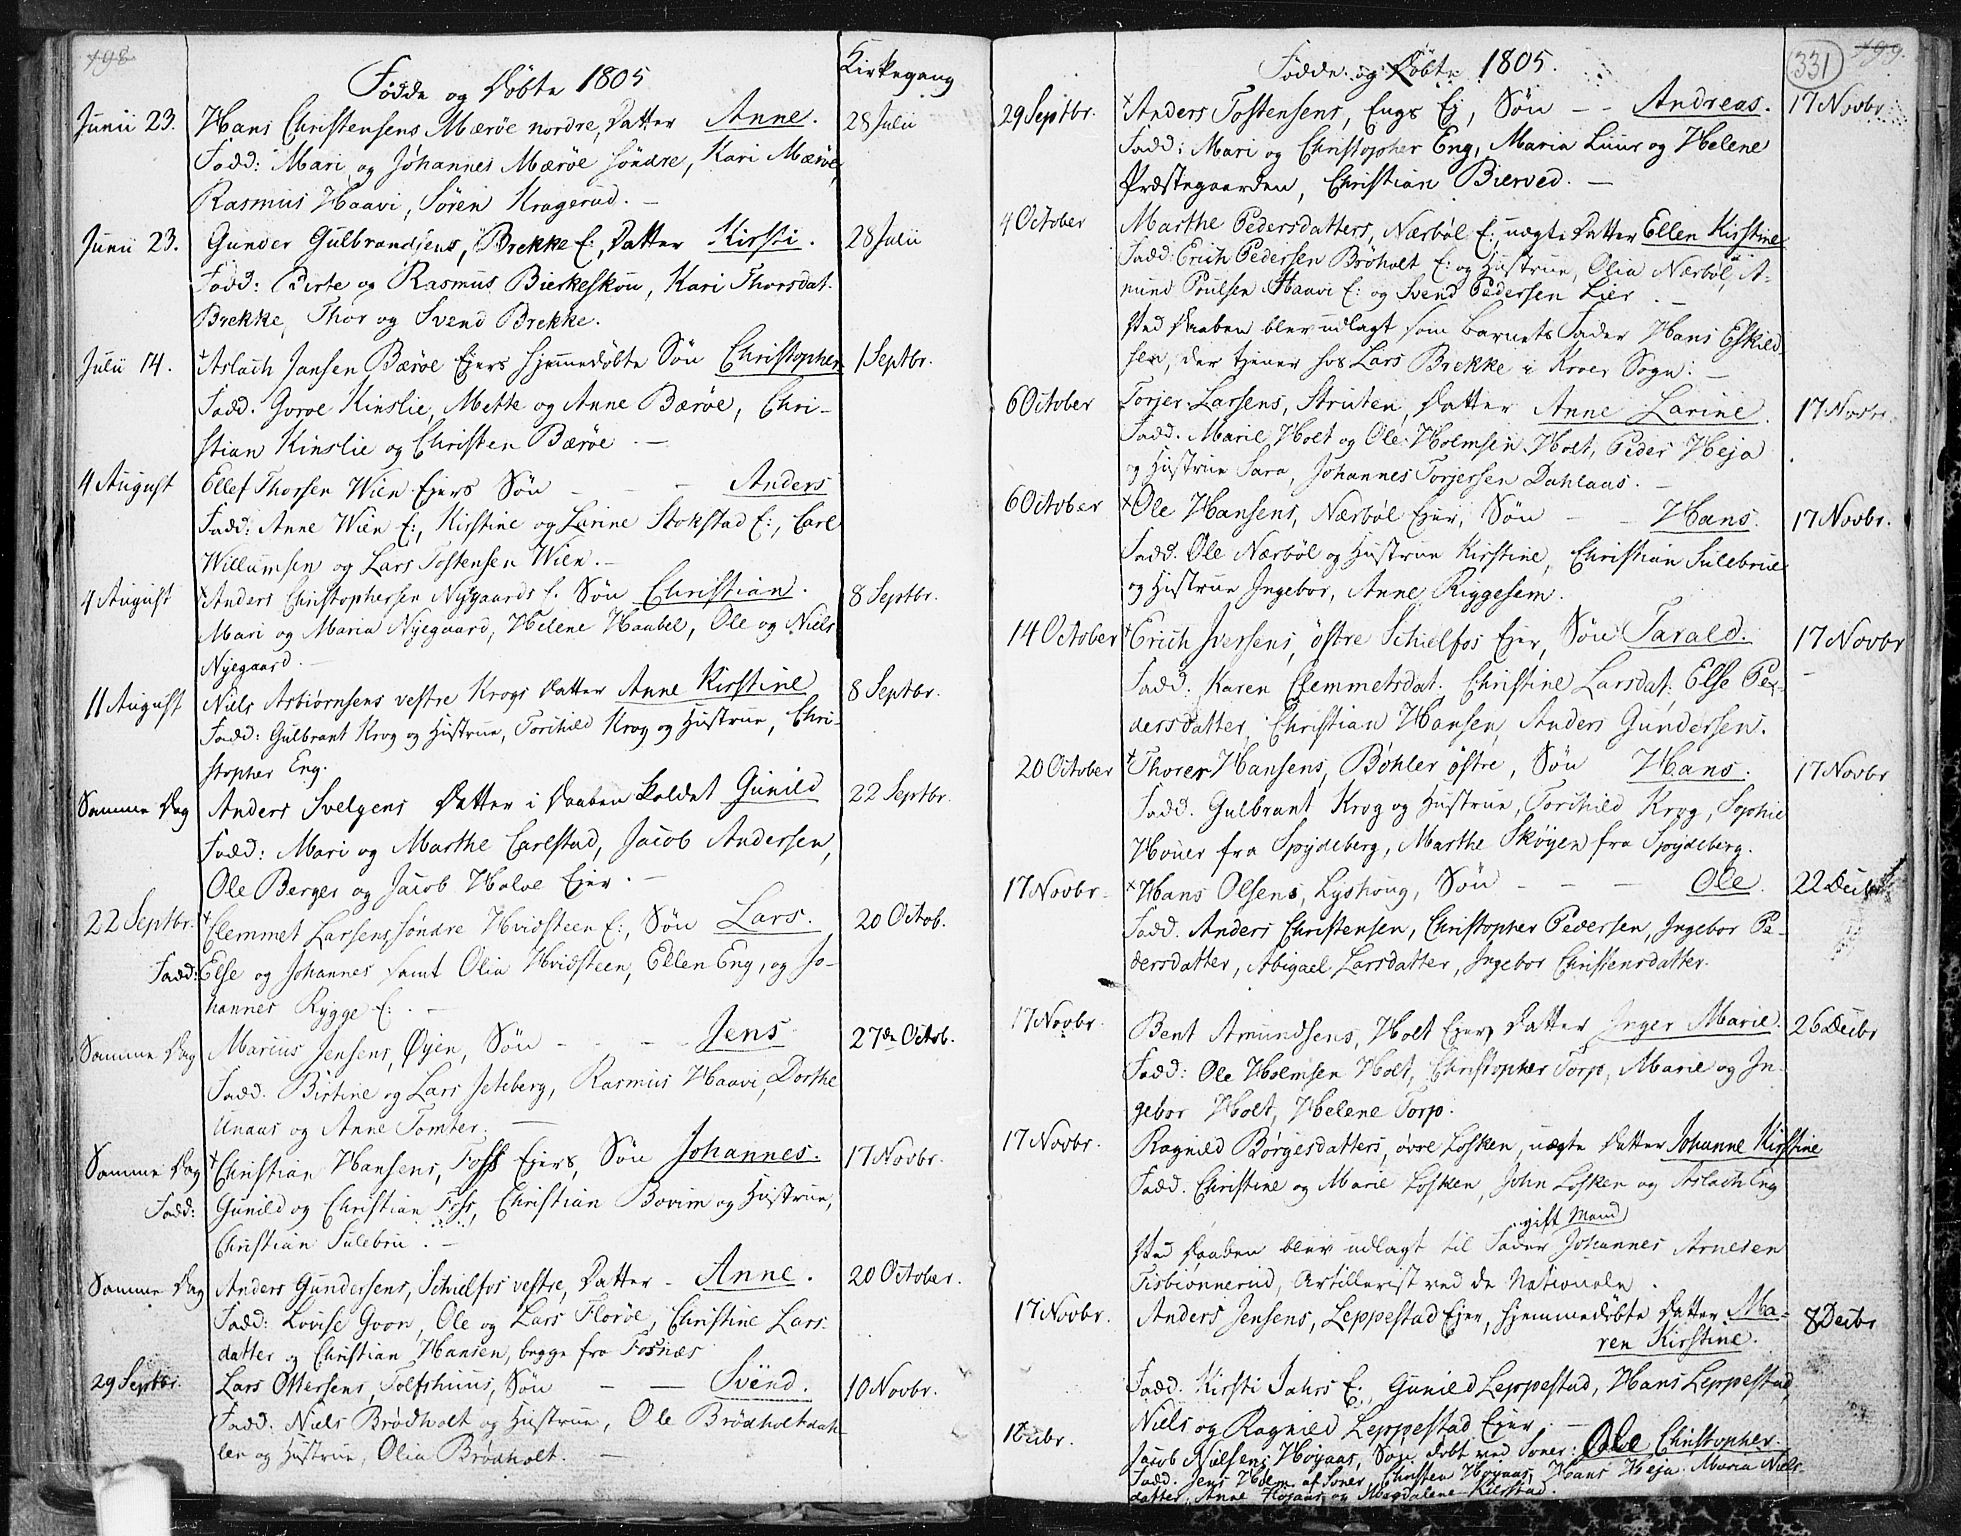 198
Fødde og Døbte 1805
Kirkegang
Junii 23. Hans Christensens Mærøe nordre, Datter Anne. 28 Julii
Fadd: Mari og Johannes Mærøe søndre, Kari Mærøe,
Rasmus Haavi, Søren Kragerud. —
Junii 23. Gunder Gulbrandsens, Brekke E:, Datter Kirsti. 28 Julii
Fadd: Birte og Rasmus Bierkeskou, Kari Thorsdat.
Brekke, Thor og Svend Brekke.
Julii 14. Aslach Jansen Bærøe Ejers hjemmedøbte Søn Christopher 1 Septbr.
Fadd. Goroe Kinslie, Mette og Anne Bærøe, Chri-
stian Kinslie og Christen Bærøe. —
4 August Ellef Thorsen Wien Ejers Søn - - - Anders
Fadd: Anne Wien E:, Kirstine og Larine Stokstad E:, Carl
Willumsen og Lars Tostensen Wien. —
4 August Anders Christophersen Nygaards E. Søn Christian. 8 Septbr.
Mari og Maria Nyegaard, Helene Haabel, Ole og Niels
Nyegaard. —
11 August Niels Asbiørnsens vestre Krogs Datter Anne Kirstine 8 Septbr.
Fadd: Gulbrant Krog og Hustrue, Torchild Krog og Hustrue, Chri-
stopher Eng.
Samme Dag Anders Svelgens Datter i Daaben kaldet Gunild 22 Septbr.
Fadd: Mari og Marthe Carlstad, Jacob Andersen,
Ole Berger og Jacob Holøe Ejer. —
22 Septbr. Clemmet Larsens, søndre Hvidsteen E:, Søn Lars. 20 Octob.
Fadd: Else og Johannes samt Olia Hvidsteen, Ellen Eng, og Jo-
hannes Rygge E: . —
Samme Dag Marcus Jensens, Øyen, Søn - - - - Jens 27de Octob.
Fadd. Birtine og Lars Jehberg, Rasmus Haavi, Dorthe
Unaas og Anne Tomter. —
Samme Dag Christian Hansens, Foss Ejers, Søn Johannes. 17 Novbr.
Fadd: Gunild og Christian Foss, Christian Bovim og Hustrue,
Christian Sulebru. —
Samme Dag Anders Gundersens, Schielfos vestre, Datter - Anne. 20 October.
Fadd: Lovise Gvon, Ole og Lars Florøe, Christine Lars-
datter og Christian Hansen, begge fra Fosnæs
29 Septbr. Lars Ottersens, Tolfshuus, Søn - — Svend. 10 Novbr.
Fadd: Niels Brødholt og Hustrue, Ole Brødholtdah-
len og Hustrue, Olia Brødholt. —
199.
331
Fødde og Døbte 1805.
29 Septbr. Anders Tostensens, Engs Ej, Søn - - Andreas. 17 Novbr.
Fadd: Mari og Christopher Eng, Maria Luur og Helene
Præstegaarden, Christian Bierved. —
4 October Marthe Pedersdatters, Nærbøl E:, uægte Datter Ellen Kirstine
Fadd: Erich Pedersen Brøholt E: og Hustrue, Olia Nærbøl, A-
mund Poulsen Haavi E: og Svend Pedersen Lier. —
Ved Daaben blev udlagt som Barnets Fader Hans Eskild-
sen, der tjener hos Lars Brekke i Kroer Sogn. —
6 October Torjer Larsens, Struten, Datter Anne Larine. 17 Novbr.
Fadd. Marie Holt og Ole Holmsen Holt, Peder Heja
og Hustrue Sara, Johannes Torjersen Dahlaas. —
6 October Ole Hansens, Nærbøl Ejer, Søn - - Hans. 17 Novbr.
Fadd. Ole Nærbøl og Hustrue Kirstine, Christian Sulebrue
og Hustrue Ingebor, Anne Riggesem.
14 October Erich Iversens, østre Schielfos Ejer, Søn Tarald. 17 Novbr
Fadd: Karen Clemmetsdat. Christine Larsdat. Else Pe-
dersdatter, Christian Hansen, Anders Gundersen.
20 October Thorer Hansens, Bøhler østre, Søn Hans. 17 Novbr
Fadd. Gulbrant Krog og Hustrue, Torchild Krog, Sophie
Houer fra Spydeberg, Marthe Skøyen fra Spydeberg.
17 Novbr. Hans Olsens, Lyshoug, Søn - - — Ole. 22 Decbr.
Fadd. Anders Christensen, Christopher Pedersen, Ingebor Pe-
dersdatter, Abigael Larsdatter, Ingebor Christensdatter.
17 Novbr. Bent Amundsens, Holt Ejer, Datter Inger Marie. 26 Decbr
Fadd: Ole Holmsen Holt, Christopher Torp, Marie og In-
gebor Holt, Helene Torp.
17 Novbr. Ragnild Børgesdatters, øvre Losken, uægte Datter Johanne Kirstine
Fadd. Christine og Marie Losken, John Losken og Aslach Eng
gift Mand
Ved Daaben blev udlagt til Fader Johannes Arnesen
Tisbiønnerud, Artillerist ved de Nationale.
17 Novbr. Anders Jensens, Leppestad Ejer, hjemmedøbte Datter Ma- 8 Decbr
ren Kirstine.
Fadd. Kirsti Jahrs E:, Gunild Leppestad, Hans Leppestad,
Niels og Ragnild Leppestad Ejer. —
1 Decbr. Jacob Nielsens Høyaas, Søn, døbt ved Soner: Ole Christopher.
Fadd. Jens Holm af Soner, Christen Høyaas, Hans Heja, Maria Niels-
datter, Anne Høyaas og Magdalene Kilsstad.